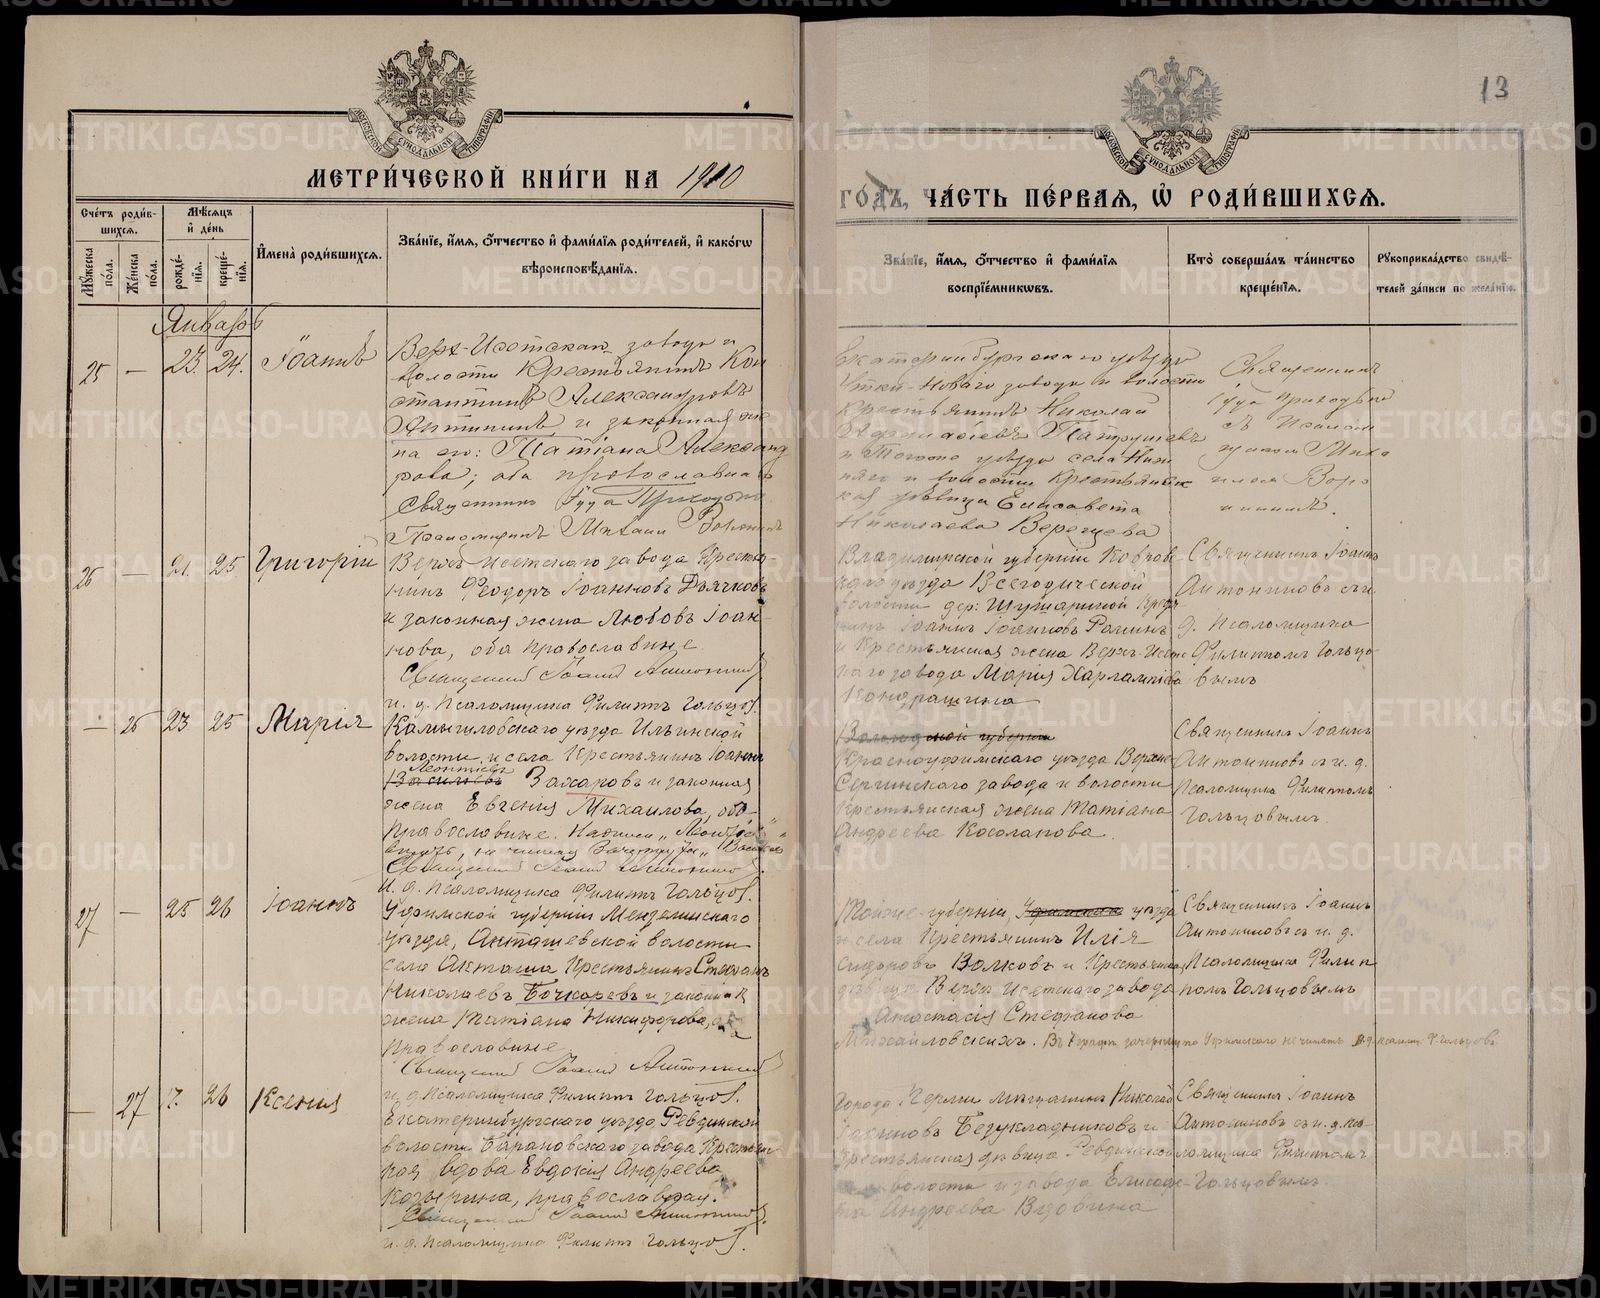 МЕТРИ́ЧЕСКОЙ КНИ́ГИ НА 1910
ГО́ДЪ, ЧА́СТЬ ПЕ́РВАЯ, Ѡ҆ РОДИ́ВШИХСЯ.
13
Сче́тъ роди́вшихся.
Мѣ́сяцъ и҆ де́нь
Мꙋ́жеска по́ла.
Же́нска по́ла.
рожде́нїя.
креще́нїя.
И҆мена̀ роди́вшихся.
Зва́нїе, и҆́мя, ѻ҆́тчество и҆ фами́лїя роди́телей, и҆ како́гѡ вѣроисповѣ́данїя.
Зва́нїе, и҆́мя, ѻ҆́тчество и҆ фами́лїя воспрїе́мникѡвъ.
Кто̀ соверша́лъ та́инство креще́нїя.
Рꙋкоприкла́дство свидѣ́телей за́писи по жела́нїю.
Январь
25 — 23. 24. Іоаннъ
Верх-Исетскаго завода и
волости Крестьянинъ Кон
стантинъ Александровъ
Антипинъ и законная же
на его: Татіана Александ
рова; оба православны
Священникъ Іуда Приходько
Псаломщикъ Михаил
Екатеринбургскаго уѣзда
Утки-Новаго завода и волости
Крестьянинъ Николай
Патрушевъ
и Того же уѣзда села
и волости Крестьянск
ая дѣвица Елисавета
Николаева Верещева
Священникъ
Іуда Приходько
съ Псалом
щикомъ Миха
иломъ
26 — 21. 25 Григорій
Верхъ Исетскаго завода Крестья
нинъ Ѳеодоръ Іоанновъ Дьячковъ
и законная жена Любовь Іоан
нова, оба православные
Священникъ Іоаннъ Антониновъ
и. д. Псаломщика Филиппъ Гольцов.
Владимірской губерніи Ковров
скаго уѣзда Всегодической
волости дер: Шушариной Крест
нинъ Іоаннъ Іоанновъ
и Крестьянская жена Верхъ-Исет
скаго завода Марія Харлампіева
Кондрашина
Священникъ Іоаннъ
Антониновъ съ и.
д. Псаломщика
Филиппомъ Гольцо
вымъ
— 26 23 25 Марія
Камышловскаго уѣзда Ильинской
волости и села Крестьянинъ Іоаннъ
Леонтіевъ
Васильевъ Захаровъ и законная
жена Евгенія Михаилова, оба
православные. Надписи „Леонтіевъ“
вѣрить, зачеркнут „
Священникъ Іоаннъ Антониновъ
и. д. Псаломщика Филиппъ Гольцов.
Вологодской губерніи
Красноуфимскаго уѣзда Верхне
Сергинскаго завода и волости
Крестьянская жена Татіана
Андреева Косолапова.
Священникъ Іоаннъ
Антониновъ съ и. д.
Псаломщика Филиппомъ
Гольцовымъ.
27 — 25 26 Іоаннъ
Уфимской губерніи Мензелинскаго
уѣзда, Акташевской волости
села Акташа Крестьянинъ Стефанъ
Николаевъ Бочкаревъ и законная
жена Татіана Никифорова, оба
православные
Священникъ Іоаннъ Антониновъ
и. д. Псаломщика Филиппъ Гольцов.
Той же губерніи, уѣзда
и села Крестьянинъ Илія
Сидоровъ Волковъ и Крестьянка,
дѣвица Верхъ Исетскаго завода
Анастасія Стефанова
Михайловскихъ. Въ 4 графѣ зачеркнуто Уфимскаго не читать и. д. псаломщ: Ф. Гольцовъ
Священникъ Іоаннъ
Антониновъ съ и. д.
Псаломщика Филип
помъ Гольцовымъ
— 27 17. 26 Ксенія
Екатеринбургскаго уѣзда Ревдинской
волости Барановскаго завода Крестьян
кая вдова Евдокія Андреева
Козырина, православная.
Священникъ Іоаннъ Антониновъ
и. д. Псаломщика Филиппъ Гольцов.
Города Перми мѣщанинъ Николай
Безукладниковъ и
Крестьянская дѣвица Ревдинской
волости и завода Елисаве
та Андреева Вдовина
Священникъ Іоаннъ
Антониновъ съ и. д. пса
ломщика Филиппомъ
Гольцовымъ.
METRIKI.GASO-URAL.RU